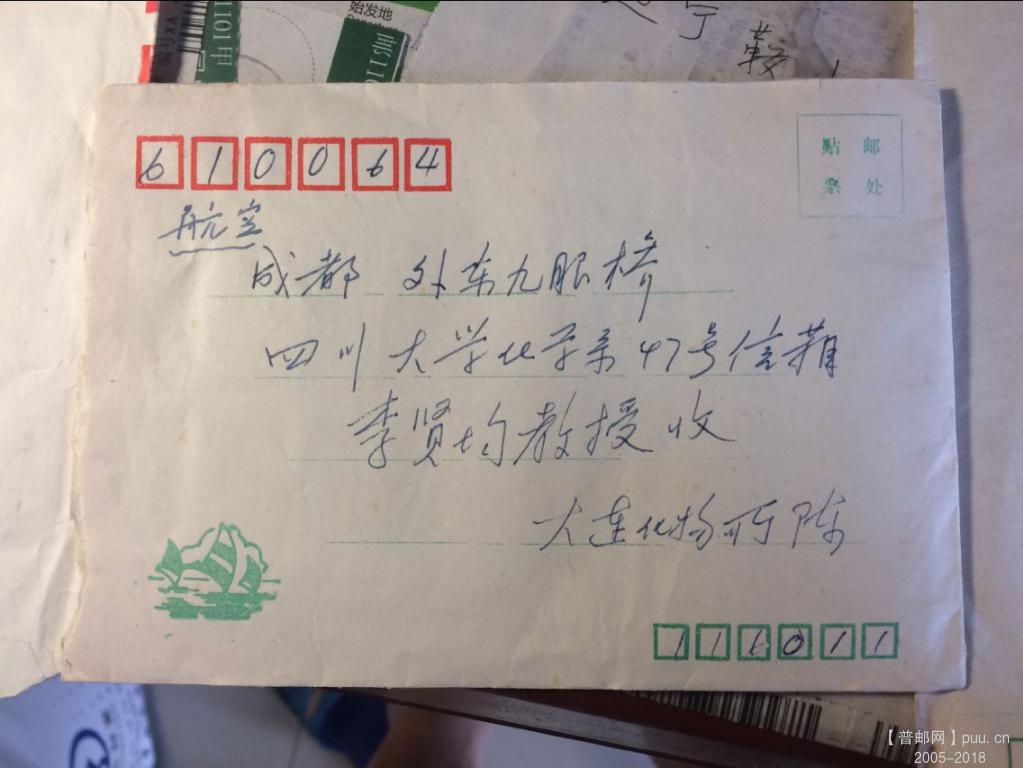 始发地
1101甲
宁
鞍
610064
贴 邮
票 处
航空
成都 外东九眼桥
四川大学化学系47号信箱
李贤均教授收
大连化物所陈
116011
【普邮网】puu.cn
2005-2018